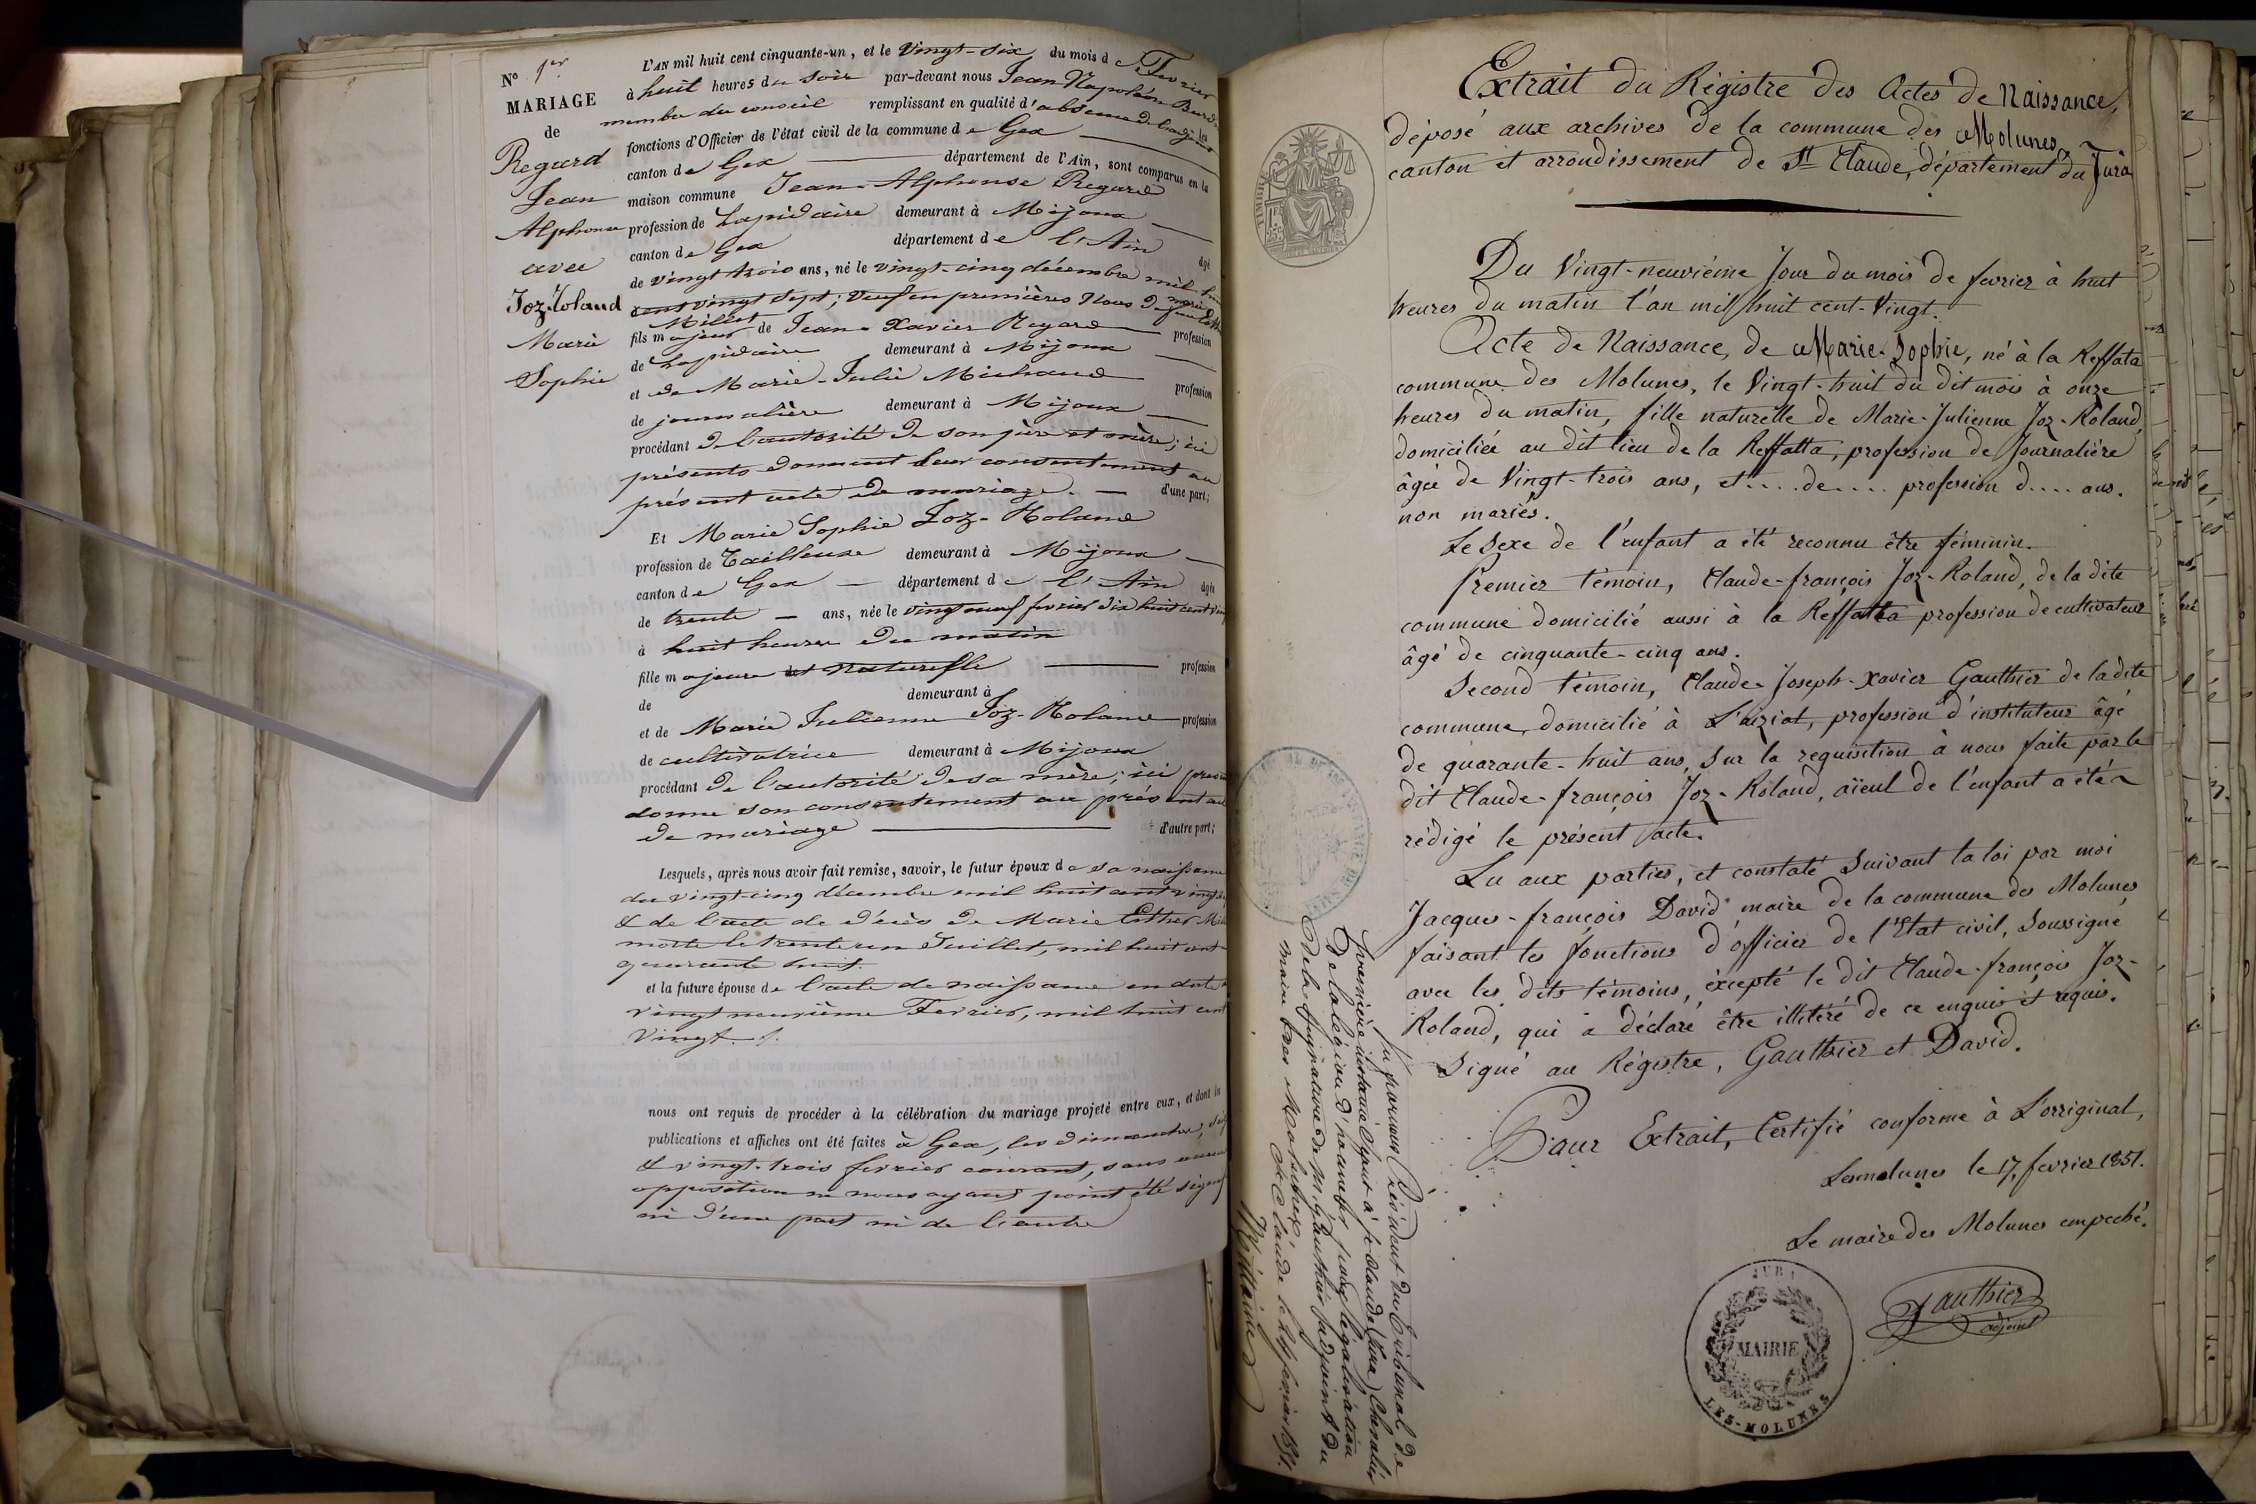 N° 1er
MARIAGE
de
Regard
Jean
Alphonse
avec
Joz-Roland
Marie
Sophie
L'AN mil huit cent cinquante-un, et le vingt-six du mois de Fevrier
à huit heures du soir par-devant nous Jean Napoléon
membre du conseil remplissant en qualité d'absence les
fonctions d'Officier de l'état civil de la commune de Gex
canton de Gex département de l'Ain, sont comparus en la
maison commune Jean-Alphonse Regard
profession de Lapidaire demeurant à Mijoux
canton de Gex département de l'Ain âgé
de vingt trois ans, né le vingt-cinq décembre mil huit
cent vingt sept; veuf en premières Noces de
Millet
fils majeur de Jean-Xavier Regard profession
de Lapidaire demeurant à Mijoux
et de Marie-Julie Michaud profession
de journalière demeurant à Mijoux
procédant de l'autorité de son père et mère; ici
présents donnent leur consentement au
présent acte de mariage. d'une part;
Et Marie Sophie Joz-Roland
profession de Tailleuse demeurant à Mijoux
canton de Gex département de l'Ain âgée
de trente ans, née le vingt neuf fevrier dix huit cent vingt
à huit heures du matin
fille majeure et naturelle profession
de demeurant à
et de Marie Julienne Joz-Roland profession
de cultivatrice demeurant à Mijoux
procédant de l'autorité de sa mère; ici
donne son consentement au présent acte
de mariage d'autre part;
Lesquels, après nous avoir fait remise, savoir, le futur époux de sa naissance
du vingt-cinq décembre mil huit cent vingt
& de l'acte de décès de Marie Esther
morte le trente un Juillet, mil huit cent
quarante huit.
et la future épouse de l'acte de naissance en date
vingt neuvième Fevrier, mil huit cent
vingt.
nous ont requis de procéder à la célébration du mariage projeté entre eux, et dont les
publications et affiches ont été faites à Gex, les dimanches,
& vingt-trois fevrier courant, sans
opposition ne nous ayant point été
ni d'une part ni de l'autre
Extrait du Régistre des Actes de Naissance,
déposé aux archives de la commune des Molunes,
canton et arrondissement de St Claude, département du Jura
Du Vingt-neuvième Jour du mois de fevrier à huit
heures du matin l'an mil huit cent-Vingt.
Acte de Naissance, de Marie-Sophie, né à la Reffata
commune des Molunes, le Vingt-huit du dit mois à onze
heures du matin, fille naturelle de Marie-Julienne Joz-Roland,
domiciliée au dit lieu de la Reffatta, profession de Journalière
âgée de Vingt-trois ans, et.... de.... profession d.... ans.
non mariés.
Le Sexe de l'enfant a été reconnu être féminin.
Premier témoin, Claude-françois Joz-Roland, de la dite
commune domicilié aussi à la Reffatta profession de cultivateur
âgé de cinquante-cinq ans.
Second témoin, Claude-Joseph-Xavier Gauthier de la dite
commune, domicilié à L'aiziat, profession d'instituteur âgé
de quarante-huit ans, sur la requisition à nous faite par le
dit Claude-françois Joz-Roland, aïeul de l'enfant a été
rédigé le présent acte.
Lu aux parties, et constaté suivant la loi par moi
Jacques-françois David maire de la commune des Molunes
faisant les fonctions d'officier de l'Etat civil, Soussigné
avec les dits témoins, éxcepté le dit Claude-françois Joz-
Roland, qui a déclaré être illitéré de ce enquis et requis.
Signé au Régistre, Gauthier et David.
Pour Extrait, Certifié conforme à L'orriginal,
Lesmolunes le 17, fevrier 1851.
Le maire des Molunes empeché.
Gauthier
adjoint
JURA
MAIRIE
LES-MOLUNES
Vu par nous Président du Tribunal de
première instance séant à St Claude (Jura) Chevalier
De la légion d'honneur pour légalisation
De la signature de M. Gauthier adjoint du
maire des Molunes
St Claude le fevrier 1851.